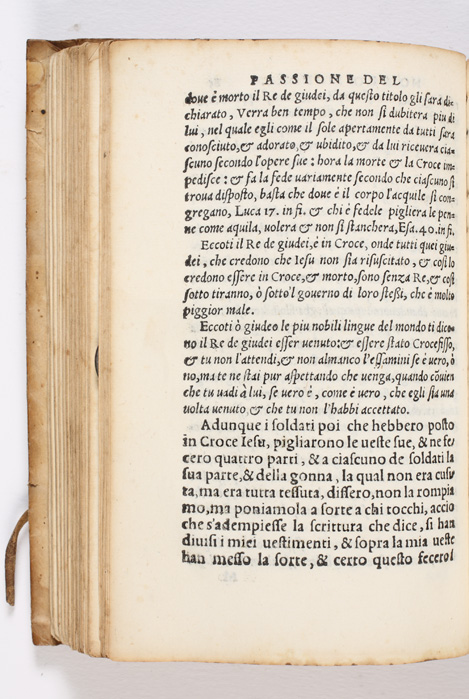 PASSIONE DEL
doue è morto il Re de giudei, da questo titolo gli sara di=
chiarato, Verra ben tempo, che non si dubitera piu di
lui, nel quale egli come il sole apertamente da tutti sara
conosciuto, & adorato, & ubidito, & da lui riceuera cia=
scuno secondo l'opere sue: hora la morte & la Croce im=
pedisce: & fa la fede uariamente secondo che ciascuno si
troua disposto, basta che doue è il corpo l'acquile si con=
gregano, Luca 17. in fi. & chi è fedele pigliera le pen=
ne come aquila, uolera & non si stanchera, Esa. 40. in fi.
Eccoti il Re de giudei, è in Croce, onde tutti quei giu=
dei, che credono che Iesu non sia risuscitato, & cosi lo
credono essere in Croce, & morto, sono senza Re, & cosi
sotto tiranno, ò sotto'l gouerno di loro stessi, che è molto
piggior male.
Eccoti ò giudeo le piu nobili lingue del mondo ti dico=
no il Re de giudei esser uenuto: & essere stato Crocefisso,
& tu non l'attendi, & non almanco l'essamini se è uero, ò
no, ma te ne stai pur aspettando che uenga, quando cōuien
che tu uadi à lui, se uero è, come è uero, che egli sia una
uolta uenuto, & che tu non l'habbi accettato.
Adunque i soldati poi che hebbero posto
in Croce Iesu, pigliarono le ueste sue, & ne fe/
cero quattro parti, & a ciascuno de soldati la
sua parte, & della gonna, la qual non era cusi/
ta, ma era tutta tessuta, dissero, non la rompia
mo, ma poniamola a sorte a chi tocchi, accio
che s'adempiesse la scrittura che dice, si han
diuisi i miei uestimenti, & sopra la mia ueste
han messo la sorte, & certo questo fecero i